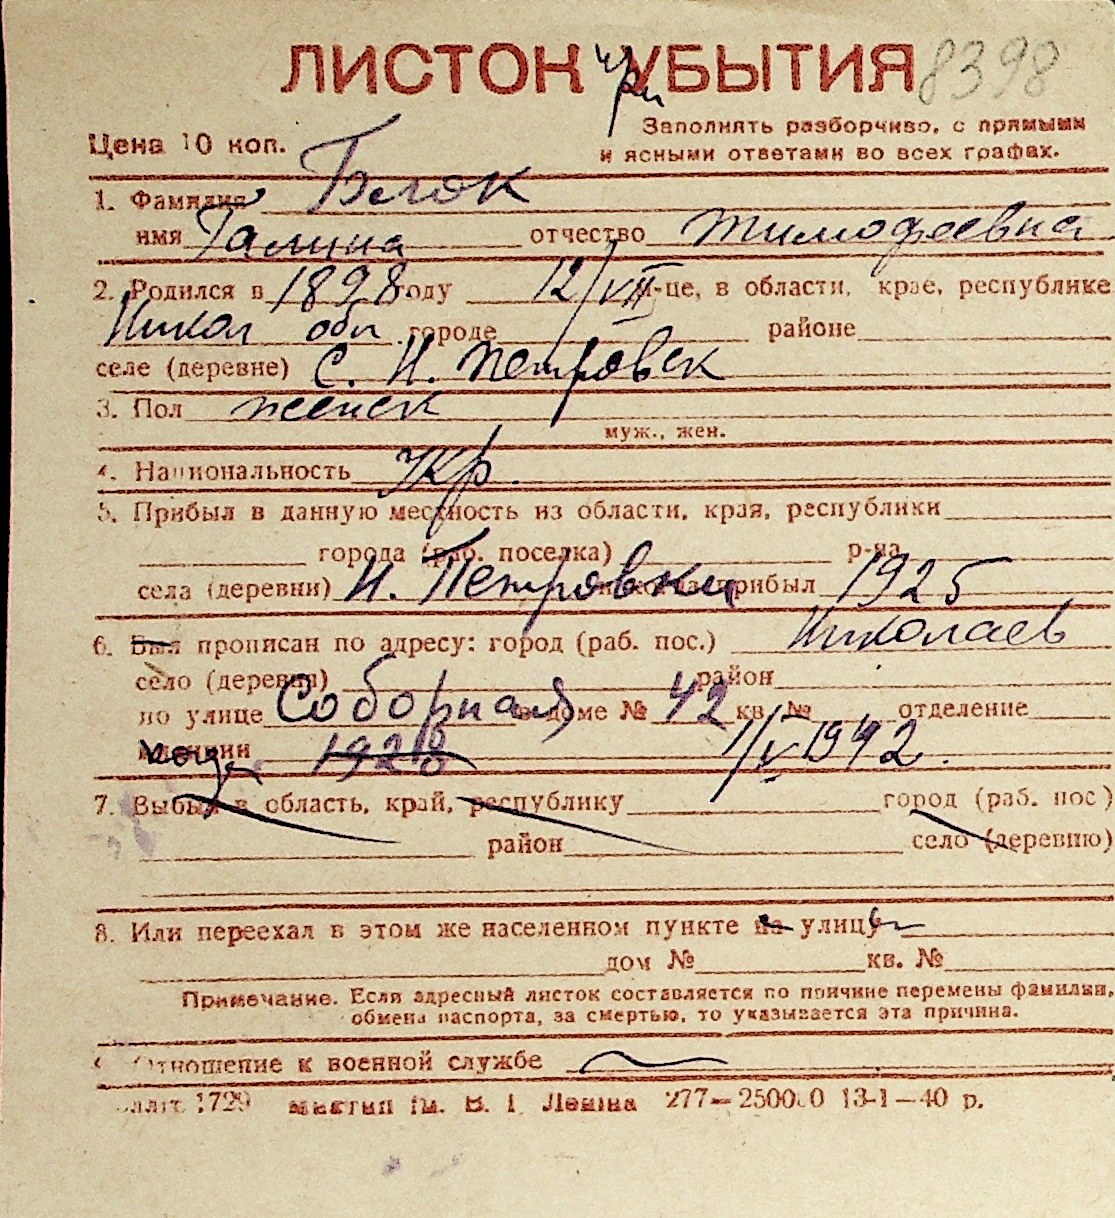 ЛИСТОК УБЫТИЯ 8398
при
Цена 10 коп.
Заполнять разборчиво, с прямыми
и ясными ответами во всех графах.
1. Фамилия Блок
имя Галина отчество Тимофеевна
2. Родился в 1898 году 12/VIII м-це, в области, крае, республике
Никол обл городе районе
селе (деревне) С. Н. Петровск
3. Пол женск
муж., жен.
4. Национальность Укр.
5. Прибыл в данную местность из области, края, республики
города (раб. поселка) р-на
села (деревни) Н. Петровки прибыл 1925
6. Был прописан по адресу: город (раб. пос.) Николаев
село (деревня) район
по улице Соборная в доме № 42 кв. № отделение
милиции 1928 1/V 1942.
7. Выбыл в область, край, республику город (раб. пос.)
район село (деревню)
8. Или переехал в этом же населенном пункте на улицу
дом № кв. №
Примечание. Если адресный листок составляется по причине перемены фамилии,
обмена паспорта, за смертью, то указывается эта причина.
Отношение к военной службе
1729 им. В. І. Леніна 277—25000 13-1—40 р.